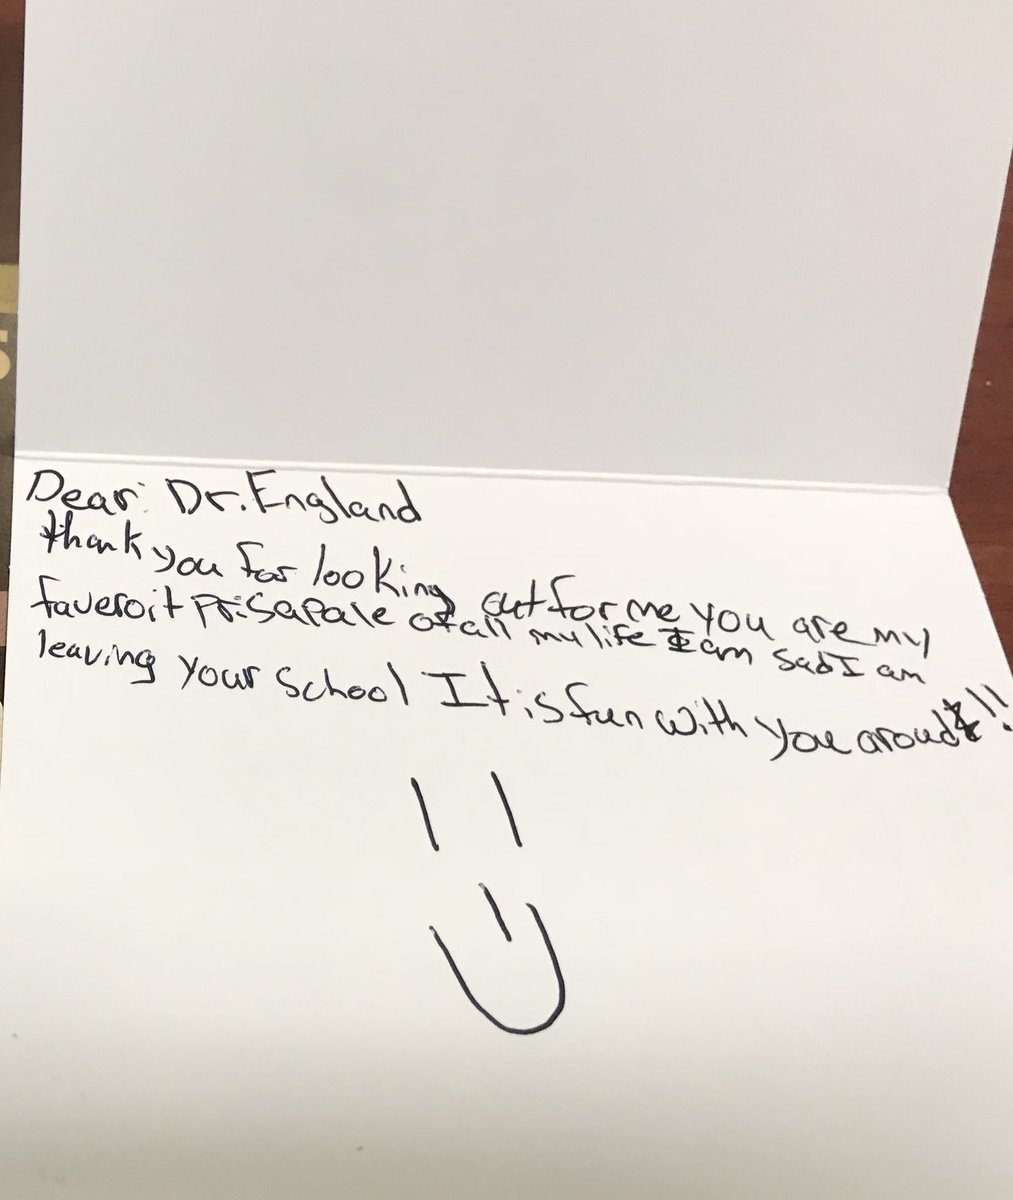 Dear: Dr. England
thank you for looking out for me you are my
faveroit prisapale of all my life I am sad I am
leaving your school It is fun with you aroud!!